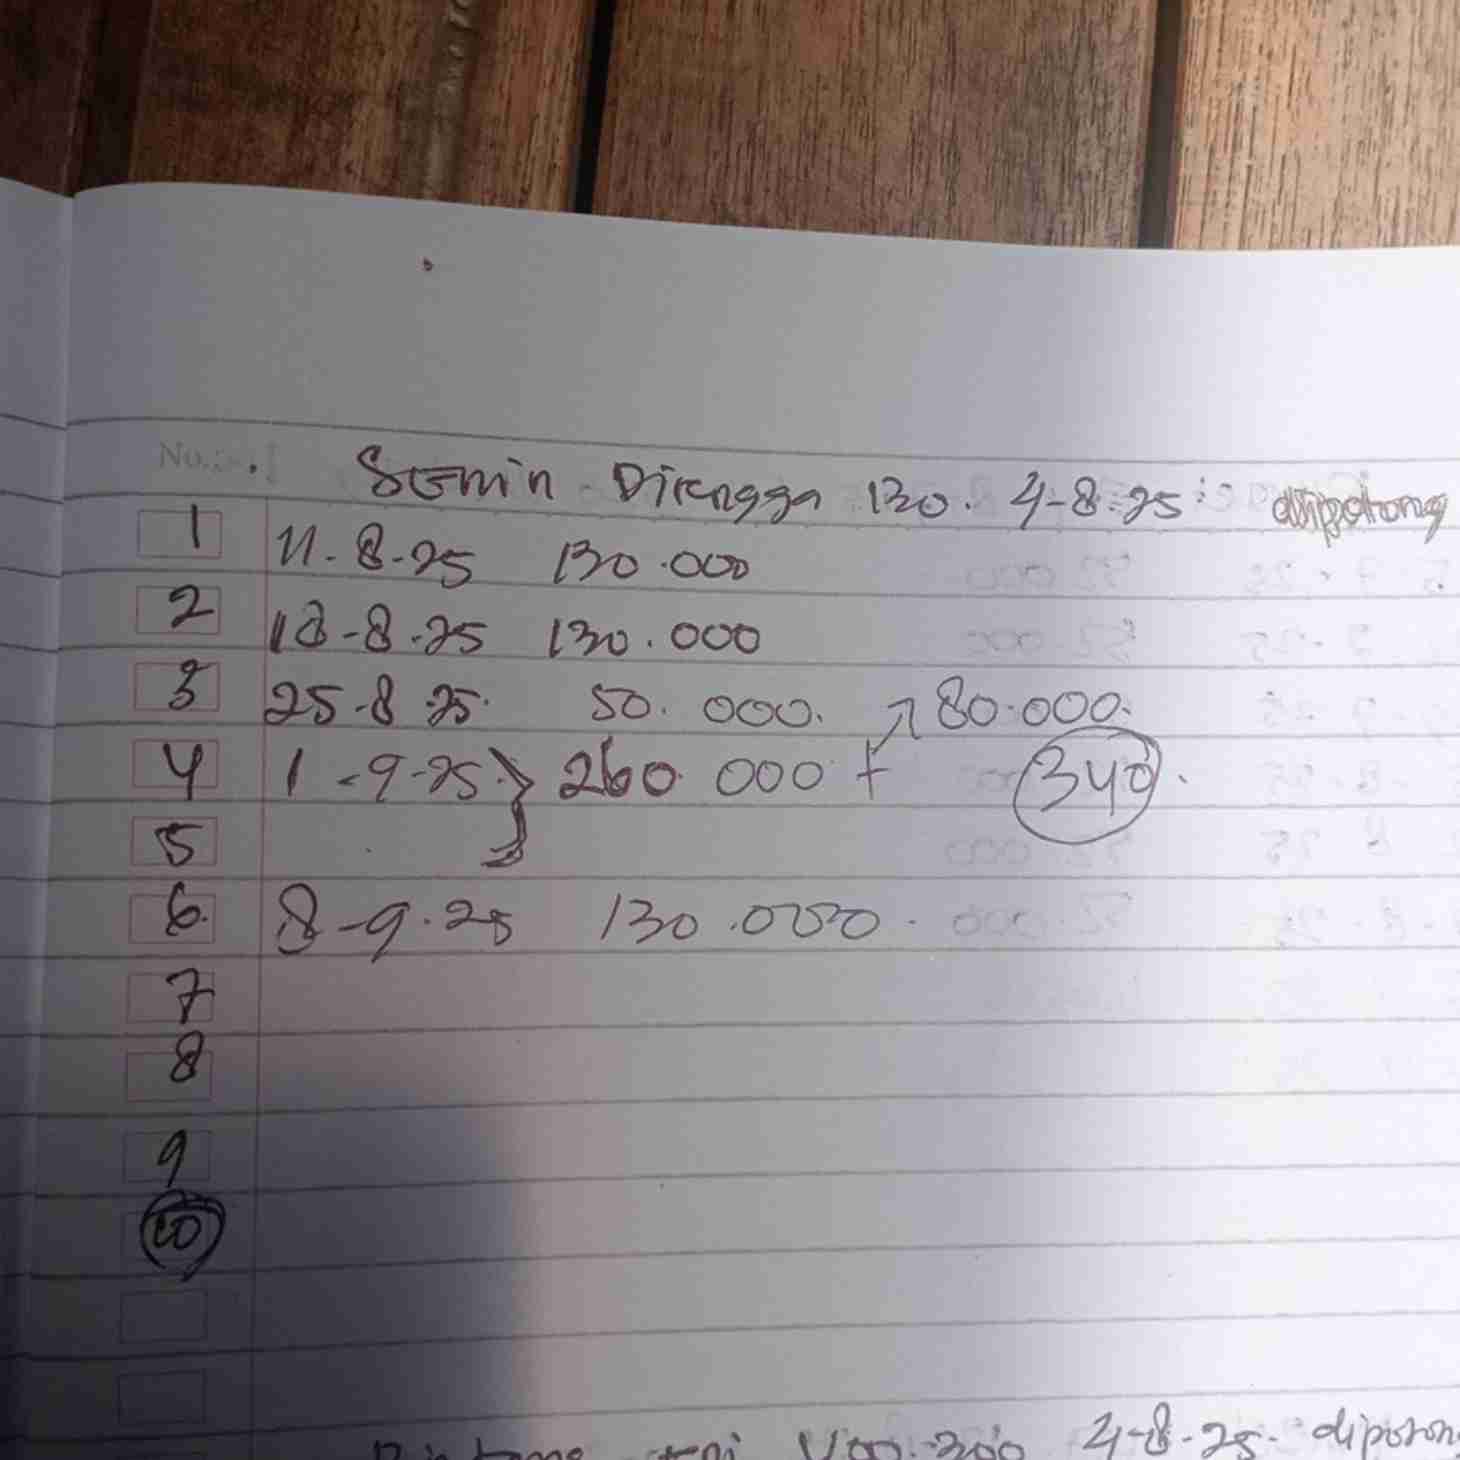 No.:
Senin Direngga 130. 4-8-25: dipotong
1 11-8-25 130.000
2 18-8-25 130.000
3 25-8-25. 50.000. ↗80.000.
4 1-9-25 } 260.000 + 340.
5
6. 8-9-25 130.000.
7
8
9
10
4-8-25. dipoton